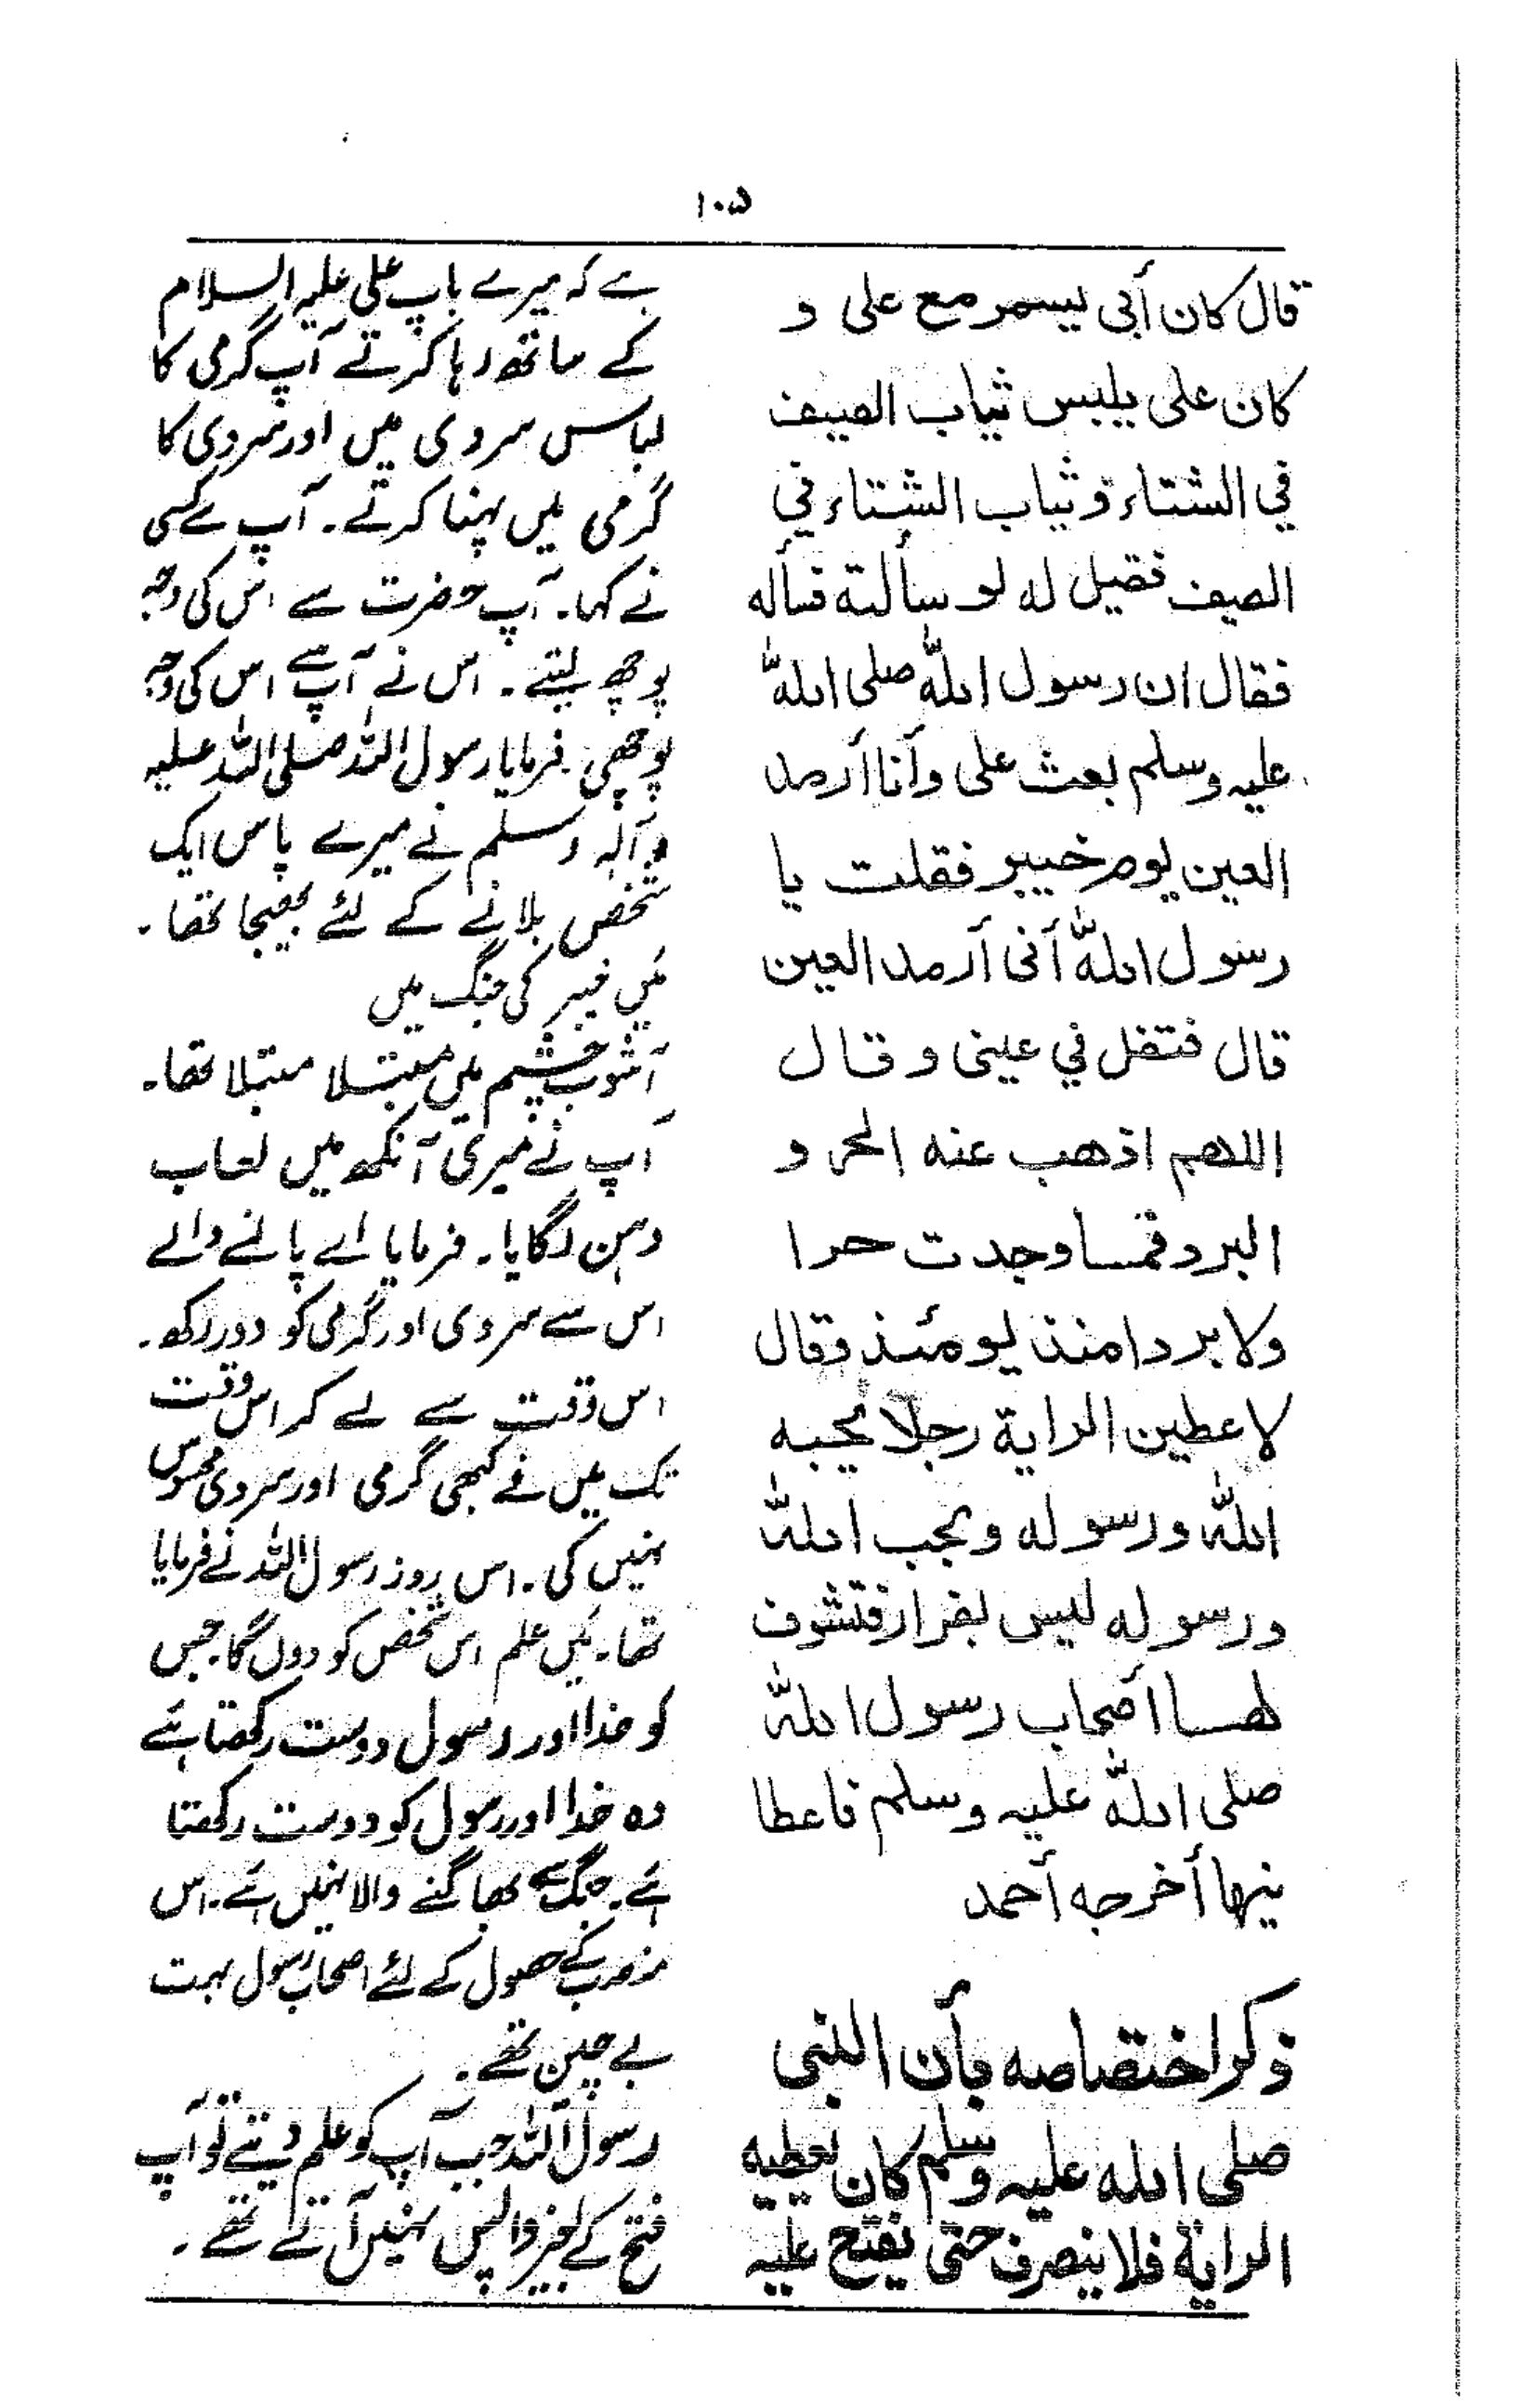 ١٠۵
قال كان أبى يسمر مع على و
كان على يلبس ثياب الصيف
في الشتاء و ثياب الشتاء في
الصيف فقيل له لو سألته فسأله
فقال ان رسول الله صلى الله
عليه وسلم بعث على وأنا أرمد
العين يوم خيبر فقلت يا
رسول الله أنى أرمد العين
قال فتفل في عينى وقال
اللهم اذهب عنه الحر و
البرد فمسا وجدت حرا
ولا بردا منذ يومئذ وقال
لاعطين الراية رجلا يحبه
الله ورسوله ويحب الله
ورسوله ليس بفرار فتشوف
لهسا أصحاب رسول الله
صلى الله عليه وسلم فاعطا
نيها أخرجه أحمد
ذكر اختصاصه بأن النبى
صلى الله عليه وسلم كان يعطيه
الراية فلا ينصرف حتى يفتح عليه
ہے کہ میرے باپ علی علیہ السلام
کے ساتھ رہا کرتے آپ گرمی کا
لباس سردی میں اور سردی کا
گرمی میں پہنا کرتے۔ آپ سے کسی
نے کہا۔ آپ حضرت سے اس کی وجہ
پوچھ لیتے۔ اس نے آپ سے اس کی وجہ
پوچھی فرمایا رسول اللہ صلی اللہ علیہ
وآلہ وسلم نے میرے پاس ایک
شخص بلانے کے لئے بھیجا تھا۔
میں خیبر کی جنگ میں
آشوب چشم میں مبتلا مبتلا تھا۔
آپ نے میری آنکھ میں لعاب
دہن لگایا۔ فرمایا اے پالنے والے
اس سے سردی اور گرمی کو دور رکھ۔
اس وقت سے لے کر اس وقت
تک میں نے کبھی گرمی اور سردی محسوس
نہیں کی۔ اس روز رسول اللہ نے فرمایا
تھا۔ میں علم اس شخص کو دوں گا۔ جس
کو خدا اور رسول دوست رکھتا ہے
وہ خدا اور رسول کو دوست رکھتا
ہے۔ جنگ سے بھاگنے والا نہیں ہے۔ اس
کے حصول کے لئے اصحاب رسول بہت
بے چین تھے۔
رسول اللہ جب آپ کو علم دیتے تو آپ
فتح کے بغیر واپس نہیں آتے تھے۔